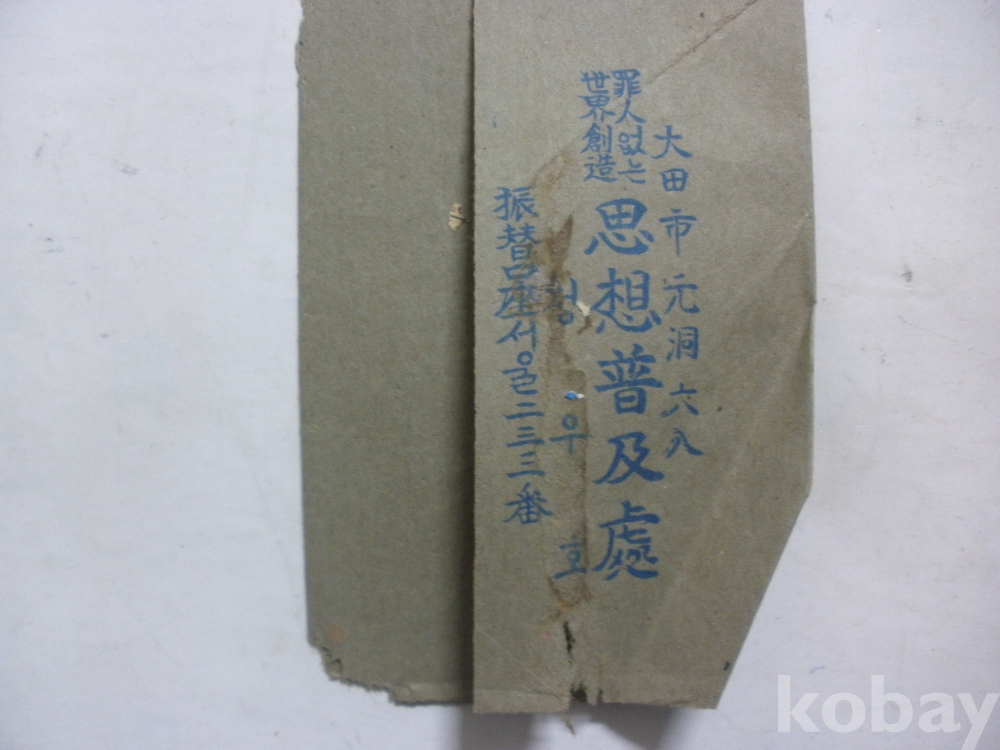 大田市元洞六八
罪人없는
世界創造
思想普及處
정우호
振替口座서울二三三番
kobay